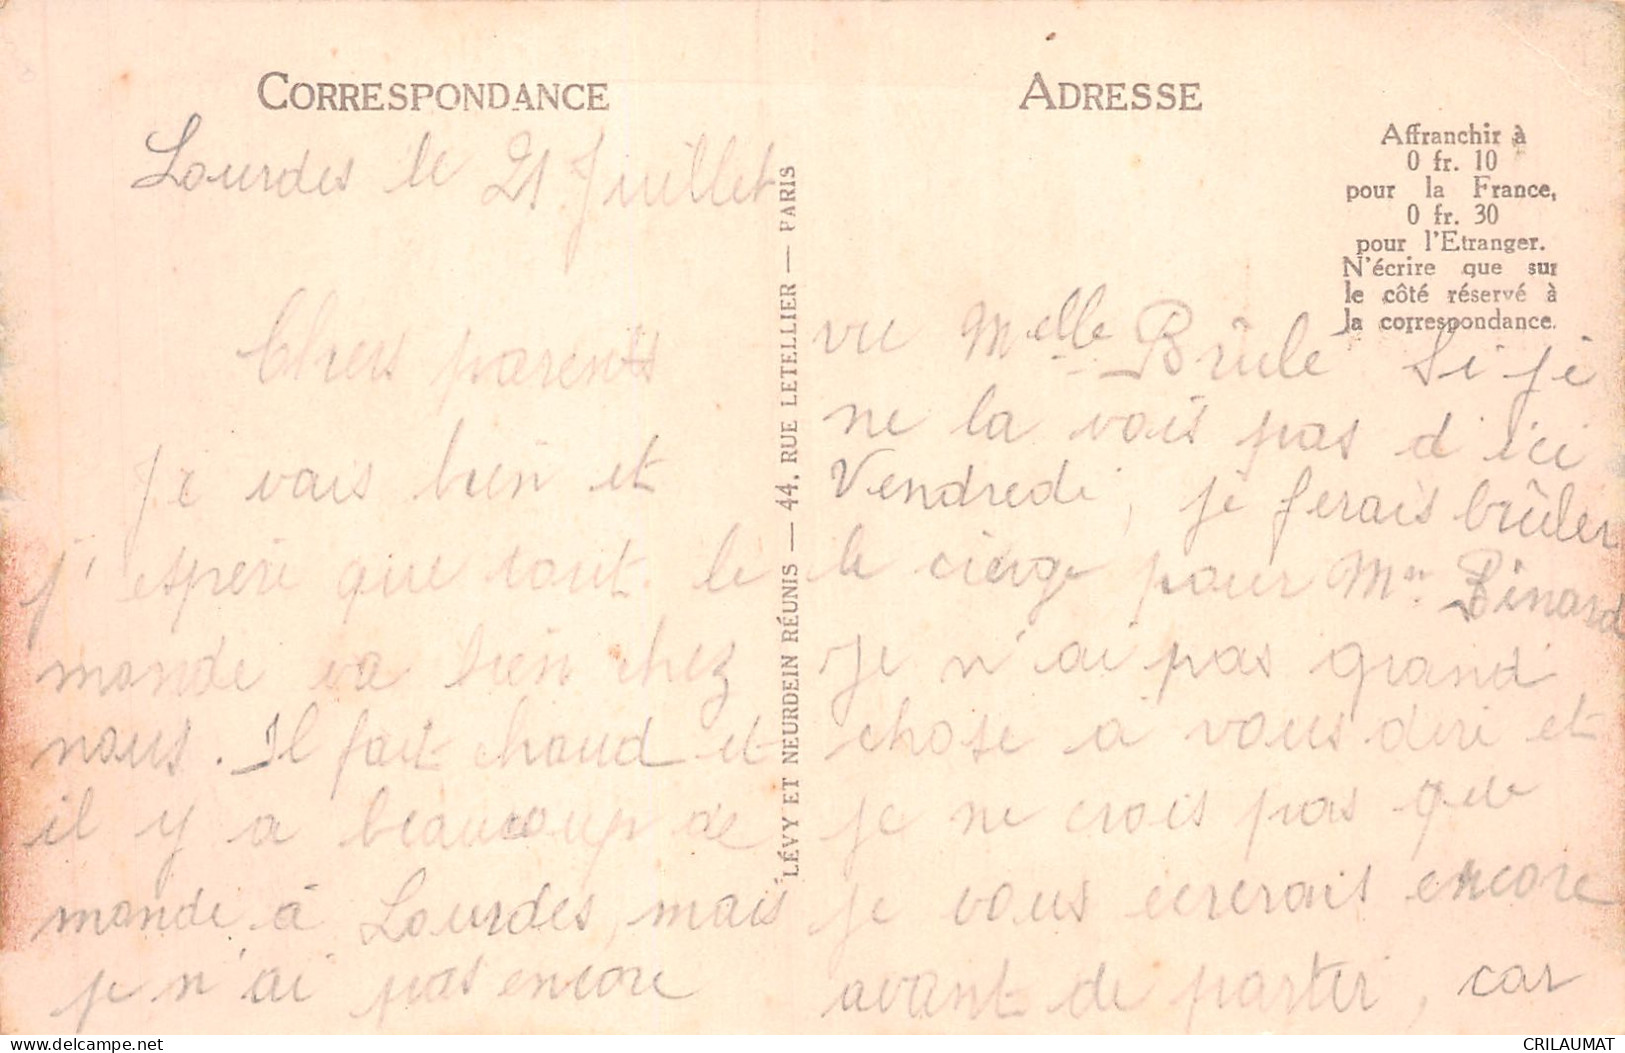 CORRESPONDANCE
Lourdes le 21 Juillet
Chers parents
Je vais bien et
j'espere que tout le
monde va bien chez
nous. Il fait chaud et
il y a beaucoup de
monde à Lourdes, mais
je n'ai pas encore
LÉVY ET NEURDEIN RÉUNIS — 44, RUE LETELLIER — PARIS
ADRESSE
Affranchir à
0 fr. 10
pour la France,
0 fr. 30
pour l'Etranger.
N'écrire que sur
le côté réservé à
la correspondance.
vu Melle Brûle Si je
ne la vois pas d'ici
Vendredi, je ferais brûler
le cierge pour Mme Binard
Je n'ai pas grand
chose a vous dire et
je ne crois pas que
je vous ecrerais encore
avant de partir, car
www.delcampe.net
CRILAUMAT